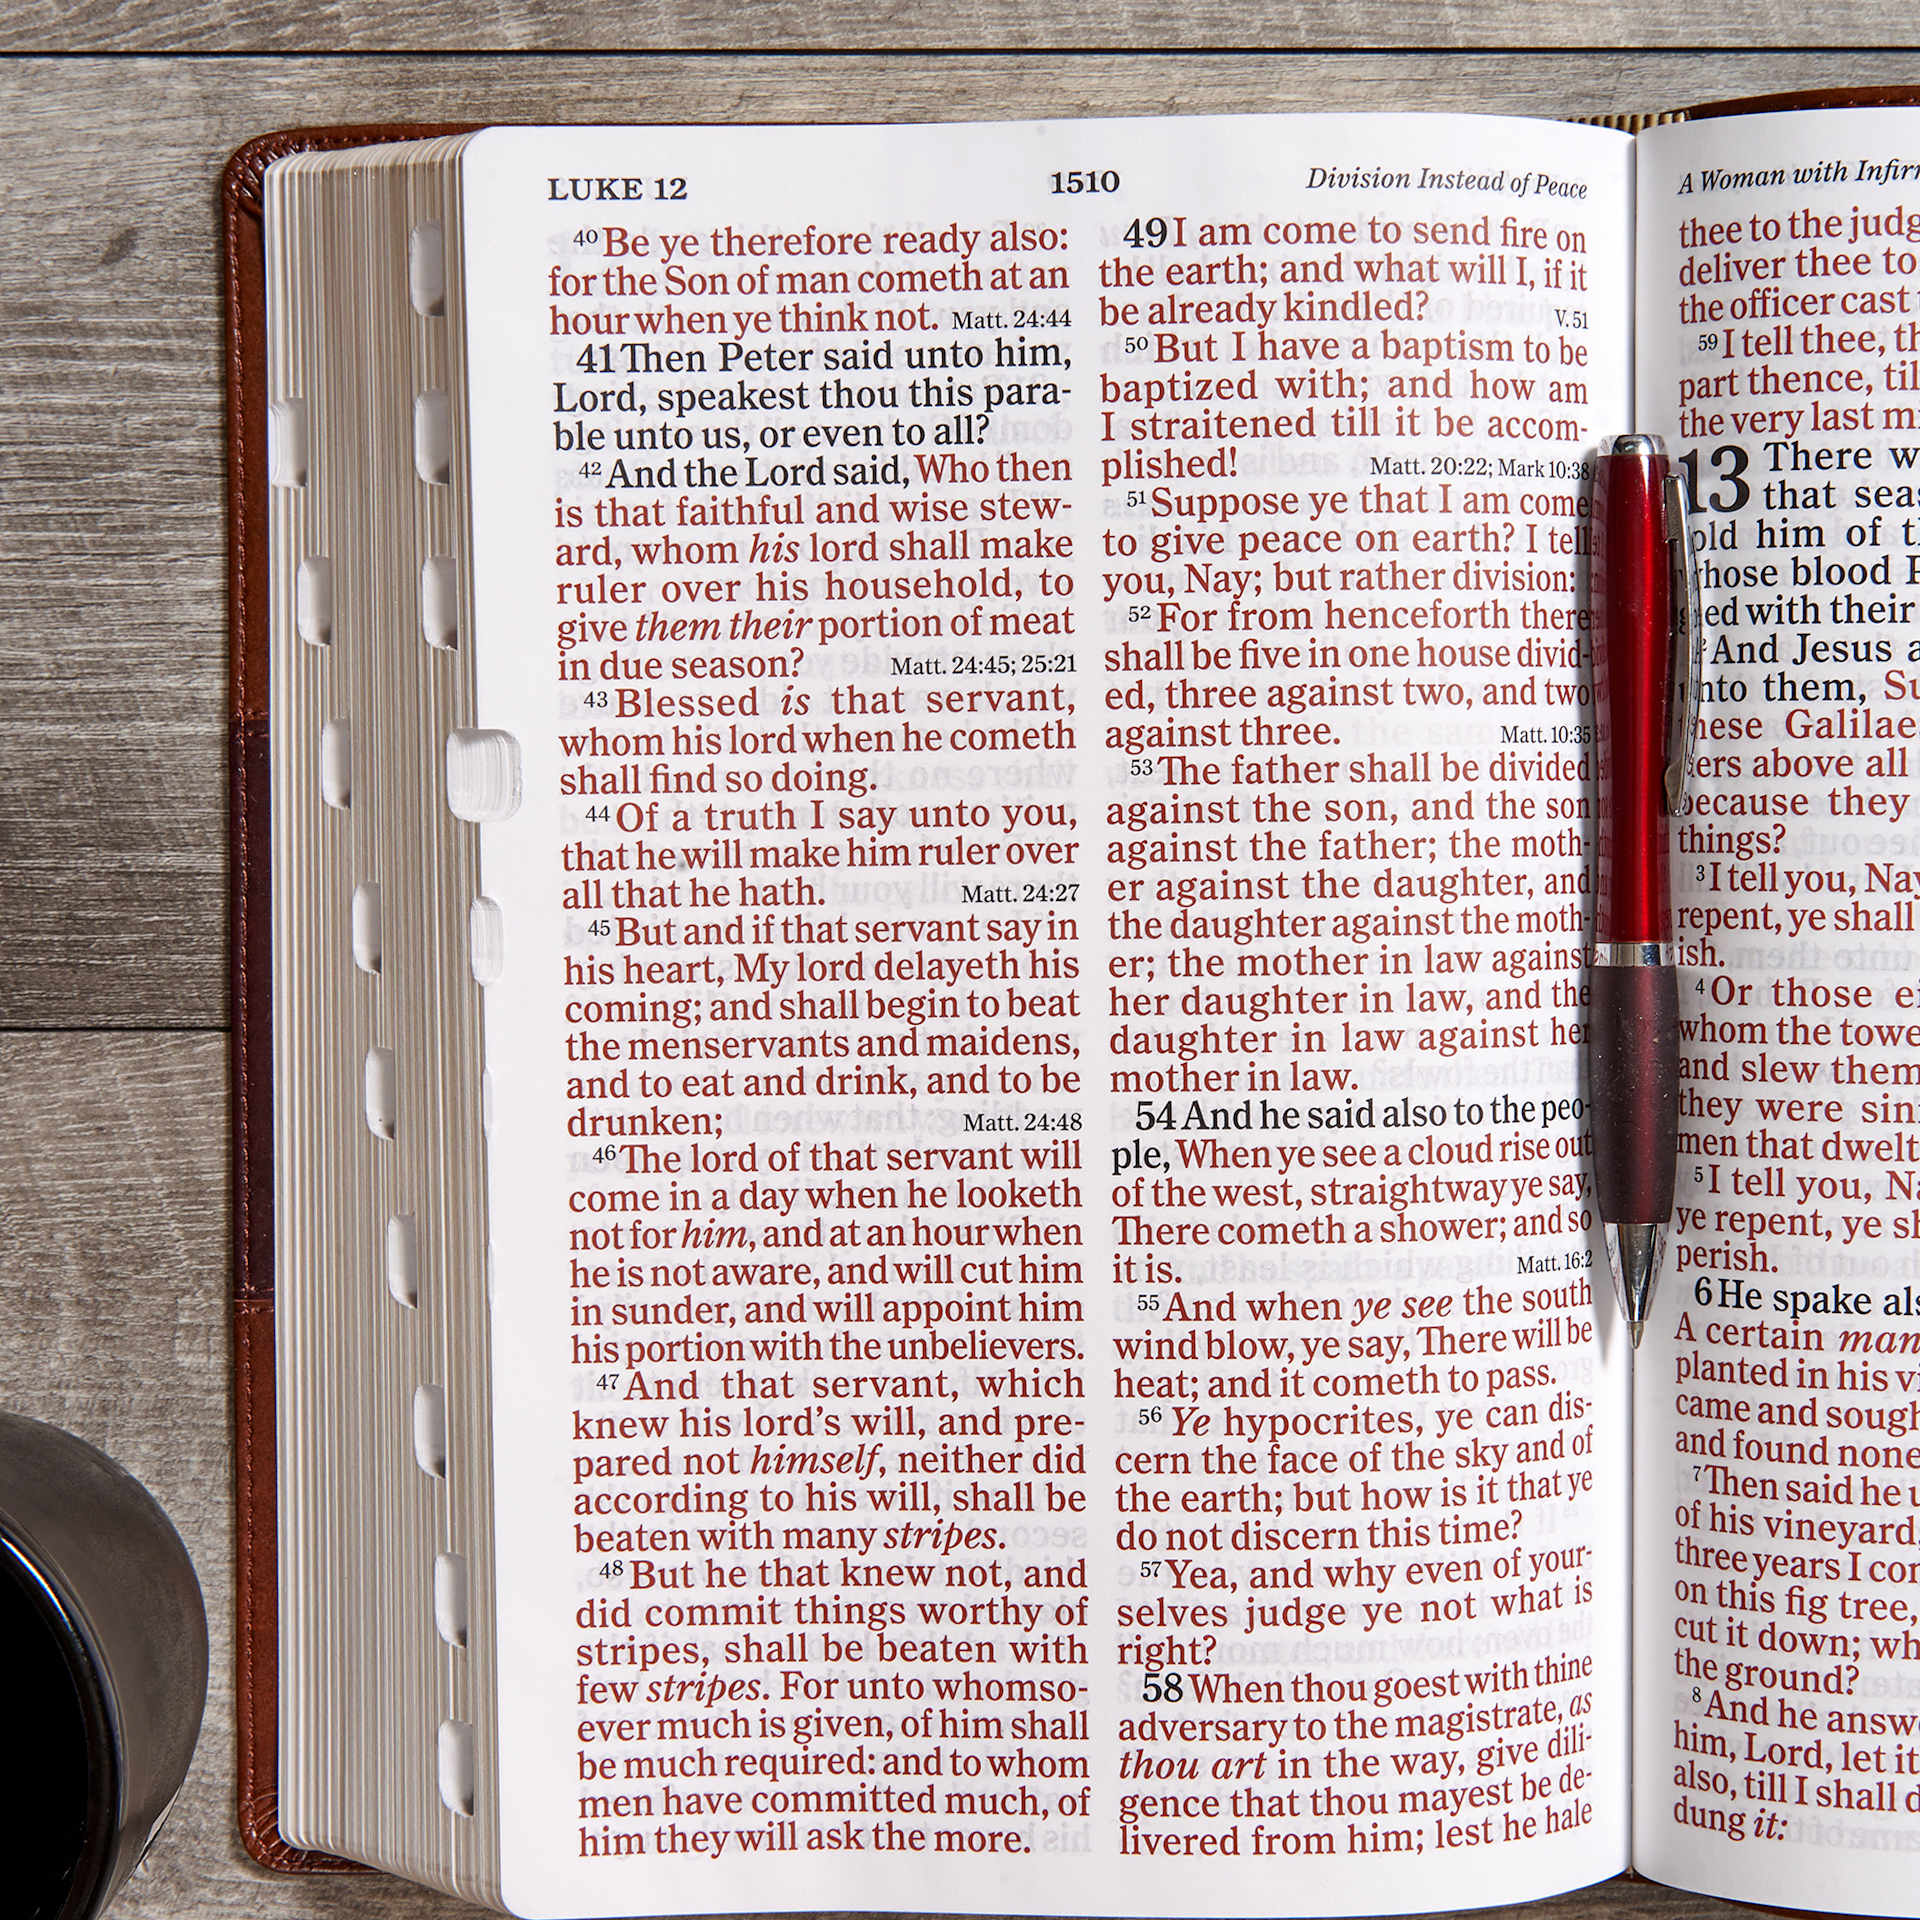 LUKE 12
1510
Division Instead of Peace
40 Be ye therefore ready also:
for the Son of man cometh at an
hour when ye think not. Matt. 24:44
41 Then Peter said unto him,
Lord, speakest thou this para-
ble unto us, or even to all?
42 And the Lord said, Who then
is that faithful and wise stew-
ard, whom his lord shall make
ruler over his household, to
give them their portion of meat
in due season? Matt. 24:45; 25:21
43 Blessed is that servant,
whom his lord when he cometh
shall find so doing.
44 Of a truth I say unto you,
that he will make him ruler over
all that he hath. Matt. 24:27
45 But and if that servant say in
his heart, My lord delayeth his
coming; and shall begin to beat
the menservants and maidens,
and to eat and drink, and to be
drunken; Matt. 24:48
46 The lord of that servant will
come in a day when he looketh
not for him, and at an hour when
he is not aware, and will cut him
in sunder, and will appoint him
his portion with the unbelievers.
47 And that servant, which
knew his lord's will, and pre-
pared not himself, neither did
according to his will, shall be
beaten with many stripes.
48 But he that knew not, and
did commit things worthy of
stripes, shall be beaten with
few stripes. For unto whomso-
ever much is given, of him shall
be much required: and to whom
men have committed much, of
him they will ask the more.
49 I am come to send fire on
the earth; and what will I, if it
be already kindled? V. 51
50 But I have a baptism to be
baptized with; and how am
I straitened till it be accom-
plished! Matt. 20:22; Mark 10:38
51 Suppose ye that I am come
to give peace on earth? I tell
you, Nay; but rather division:
52 For from henceforth there
shall be five in one house divid-
ed, three against two, and two
against three. Matt. 10:35
53 The father shall be divided
against the son, and the son
against the father; the moth-
er against the daughter, and
the daughter against the moth-
er; the mother in law against
her daughter in law, and the
daughter in law against her
mother in law.
54 And he said also to the peo-
ple, When ye see a cloud rise out
of the west, straightway ye say,
There cometh a shower; and so
it is. Matt. 16:2
55 And when ye see the south
wind blow, ye say, There will be
heat; and it cometh to pass.
56 Ye hypocrites, ye can dis-
cern the face of the sky and of
the earth; but how is it that ye
do not discern this time?
57 Yea, and why even of your-
selves judge ye not what is
right?
58 When thou goest with thine
adversary to the magistrate, as
thou art in the way, give dili-
gence that thou mayest be de-
livered from him; lest he hale
A Woman with
thee to the
deliver thee to
the officer cast
59 I tell thee,
part thence,
the very last
13 There
that
him of
blood
with their
And Jesus
them,
Galilae
above all
because they
things?
3 I tell you, Nay
repent, ye shall
ish.
4 Or those
whom the
and slew them
they were
men that dwelt
5 I tell you,
ye repent, ye
perish.
6 He spake
A certain man
planted in his
came and
and found none
7 Then said he
of his vineyard,
three years I
on this fig tree,
cut it down;
the ground?
8 And he
him, Lord, let it
also, till I shall
dung it: